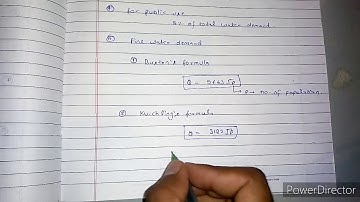 ④ for public use
5% of total water demand
⑤ Fire water demand
① Buston's formula
Q = 5663 √P
P → no of population
② Kuichling's formula
Q = 3182 √P
PowerDirector